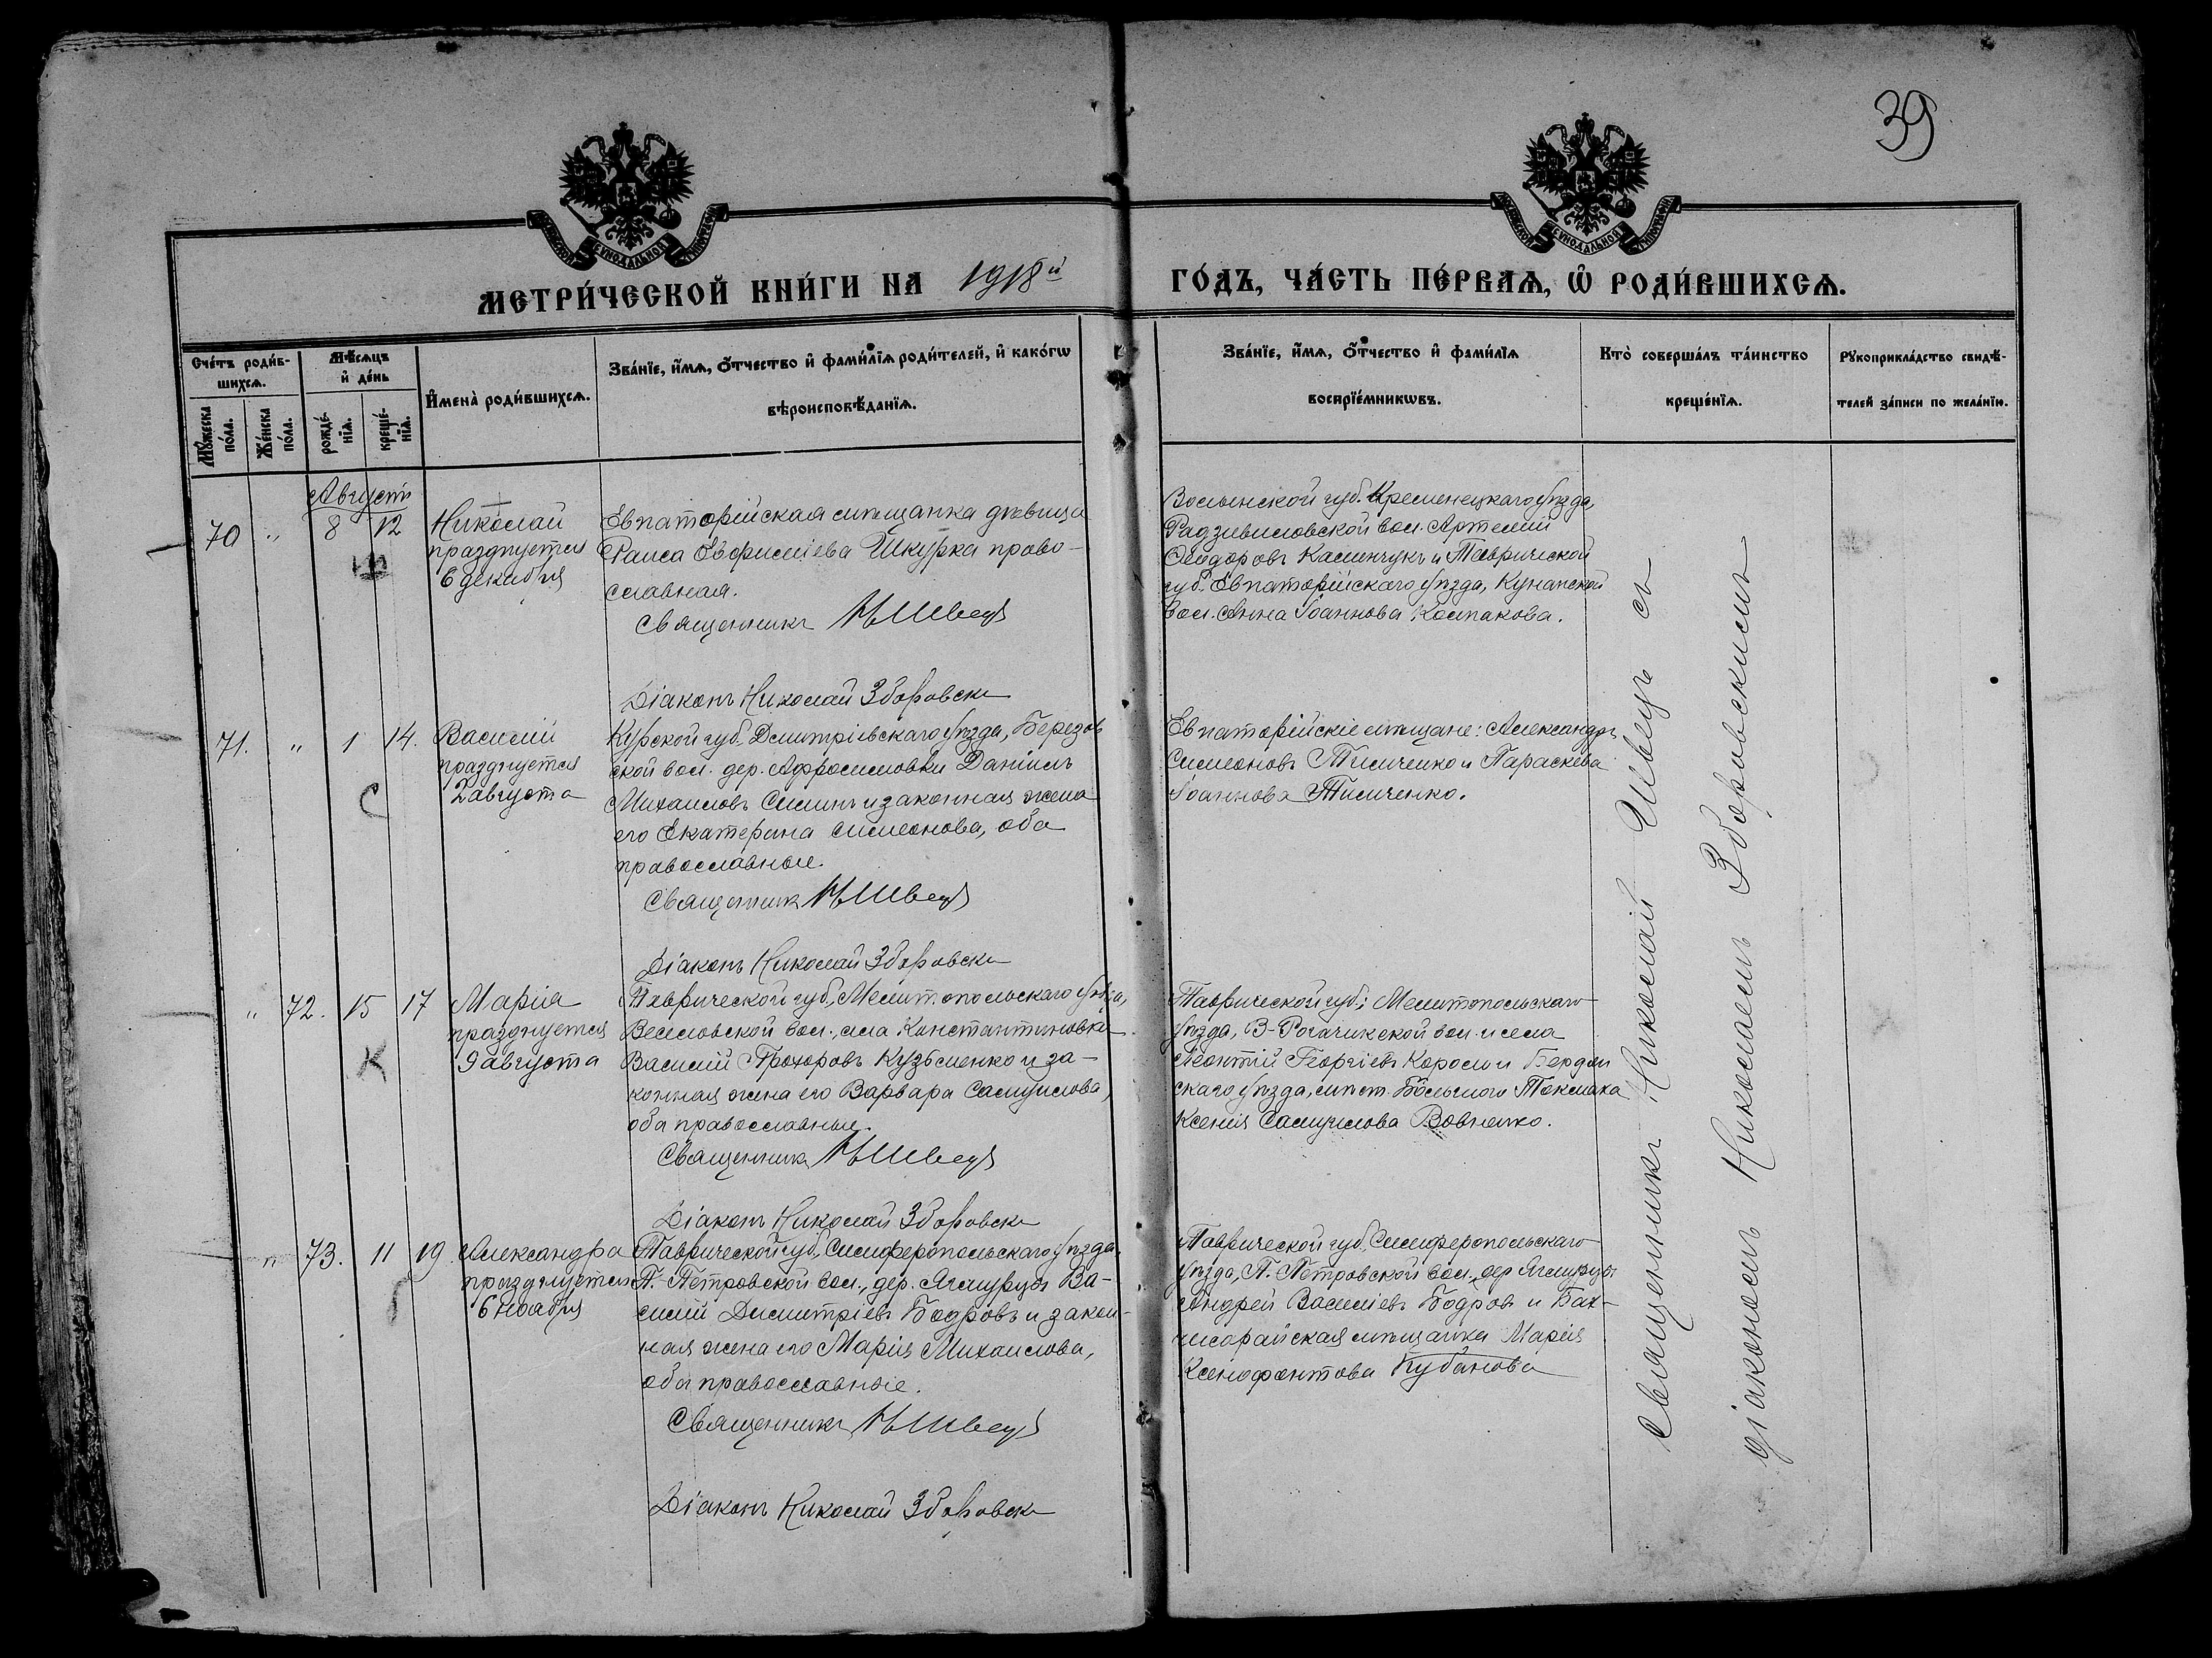 39
МЕТРИ́ЧЕСКОЙ КНИ́ГИ НА 1918й
ГО́ДЪ, ЧА́СТЬ ПЕ́РВАѦ, Ѡ҆ РОДИ́ВШИХСѦ.
Сче́тъ роди́в-
шихсѧ.
Мꙋ́жеска
по́ла.
Же́нска
по́ла.
Мѣ́сѧцъ
и҆ де́нь
рожде́-
нїѧ.
креще́-
нїѧ.
И҆мена̀ роди́вшихсѧ.
Зва́нїе, и҆́мѧ, ѻ҆́тчество и҆ фами́лїѧ роди́телей, и҆ како́гѡ
вѣроисповѣ́данїѧ.
Зва́нїе, и҆́мѧ, ѻ҆́тчество и҆ фами́лїѧ
воспрїе́мникѡвъ.
Кто̀ соверша́лъ та́инство
креще́нїѧ.
Рꙋкоприкла́дство свидѣ́-
телей за́писи по жела́нїю.
Августъ
70 " 8 12
Николай
празднуется
6 декабря
Евпаторійская мѣщанка дѣвица
Раиса Евфиміева Шкурка право-
славная.
Священникъ Н Швецъ
Діаконъ Николай Зборовскі
Волынской губ. Кременецкаго уѣзда,
Радзивиловской вол. Артемій
Ѳеодоровъ Калинчукъ и Таврической
губ. Евпаторійскаго уѣзда, Кунанской
вол. Анна Іоаннова Колпакова.
71. " 1 14.
Василій
празднуется
2 августа
С
Курской губ. Дмитріевскаго уѣзда, Березов
ской вол. дер. Афросимовки Даніилъ
Михаиловъ Симинъ и законная жена
его Екатерина Симеонова, оба
православные.
Священникъ Н Швецъ
Діаконъ Николай Зборовскі
Евпаторійскіе мѣщане: Александръ
Симеоновъ Тимченко и Параскева
Іоаннова Тимченко.
" 72. 15 17
Марія
празднуется
9 августа
К
Таврической губ., Мелитопольскаго уѣзда,
Веселовской вол., села Константиновки
Василій Прохоровъ Кузьменко и за-
конная жена его Варвара Самуилова,
оба православные.
Священникъ Н Швецъ
Діаконъ Николай Зборовскі
Таврической губ., Мелитопольскаго
уѣзда, В-Рогачикской вол. и села
Леонтій Георгіевъ Король и Бердян
скаго уѣзда, мѣст. Большого Токмака
Ксенія Самуилова Вовненко.
" 73. 11 19
Александра
празднуется
6 ноября
Таврической губ. Симферопольскаго уѣзда
П. Петровской вол., дер. Ягмурцы Ва-
силій Димитріевъ Бодровъ и закон-
ная жена его Марія Михаилова,
оба православные.
Священникъ Н Швецъ
Діаконъ Николай Зборовскі
Таврической губ. Симферопольскаго
уѣзда, П. Петровской вол., дер Ягмурцы
Андрей Василіевъ Бодровъ и Бах-
чисарайская мѣщанка Марія
Ксенофонтова Кубанова
Священникъ Николай Швецъ съ
діакономъ Николаемъ Зборовскимъ